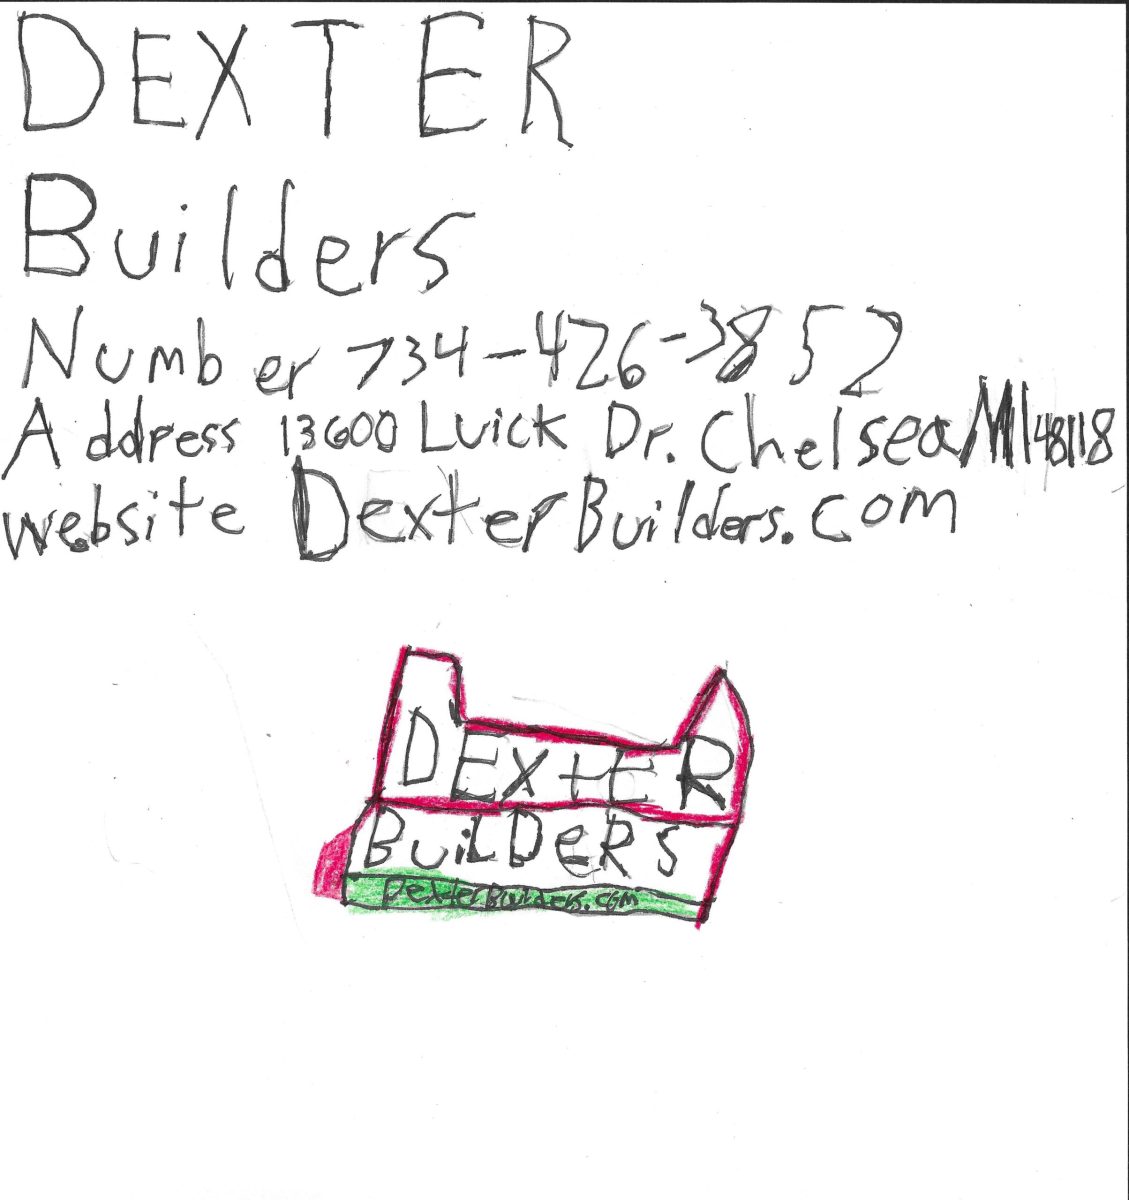 DEXTER
Builders
Number 734-426-3852
Address 13600 Luick Dr. Chelsea MI 48118
website DexterBuilders.com
DEXtER
BuiLDeRS
DexterBuilders.com